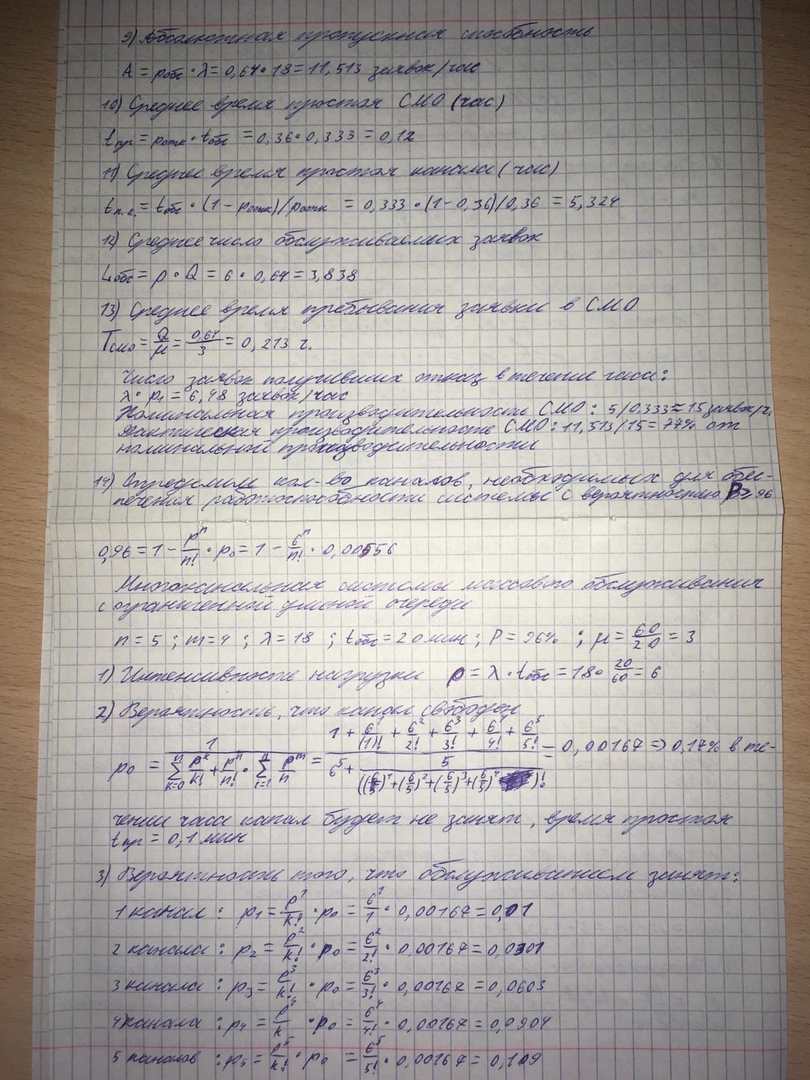 9) Абсолютная пропускная способность
A = pобс · λ = 0,64 · 18 = 11,513 заявок/час
10) Среднее время простоя СМО (час)
tпр = pотк · tобс = 0,36 · 0,333 = 0,12
11) Среднее время простоя канала (час)
tп.к. = tобс · (1 - pотк)/pотк = 0,333 · (1 - 0,36)/0,36 = 5,324
12) Среднее число обслуживаемых заявок
Lобс = ρ · Q = 6 · 0,64 = 3,838
13) Среднее время пребывания заявки в СМО
Tсмо = Q/μ = 0,64/3 = 0,213 ч.
Число заявок получивших отказ в течение часа:
λ · p1 = 6,48 заявок/час
Номинальная производительность СМО: 5/0,333 ≈ 15 заявок/ч.
Фактическая производительность СМО: 11,513/15 = 77% от
номинальной производительности
14) Определим кол-во каналов, необходимых для обес-
печения работоспособности системы с вероятностью P ≥ 0,96
0,96 = 1 - p^n/n! · p0 = 1 - 6^n/n! · 0,00556
Многоканальная система массового обслуживания
с ограниченной длиной очереди
n = 5 ; m = 4 ; λ = 18 ; tобс = 20 мин ; P = 96% ; μ = 60/20 = 3
1) Интенсивность нагрузки ρ = λ · tобс = 18 · 20/60 = 6
2) Вероятность, что канал свободен
p0 = = 0,00167 => 0,17% в те-
чении часа канал будет не занят, время простоя
tпр = 0,1 мин
3) Вероятность того, что обслуживанием занят:
1 канал : p1 = p^1/k! · p0 = 6^1/1 · 0,00167 = 0,01
2 канала : p2 = p^2/k! · p0 = 6^2/2! · 0,00167 = 0,0301
3 канала : p3 = p^3/k! · p0 = 6^3/3! · 0,00167 = 0,0603
4 канала : p4 = p^4/k · p0 = 6^4/4! · 0,00167 = 0,0904
5 каналов : p5 = p^5/k! · p0 = 6^5/5! · 0,00167 = 0,109